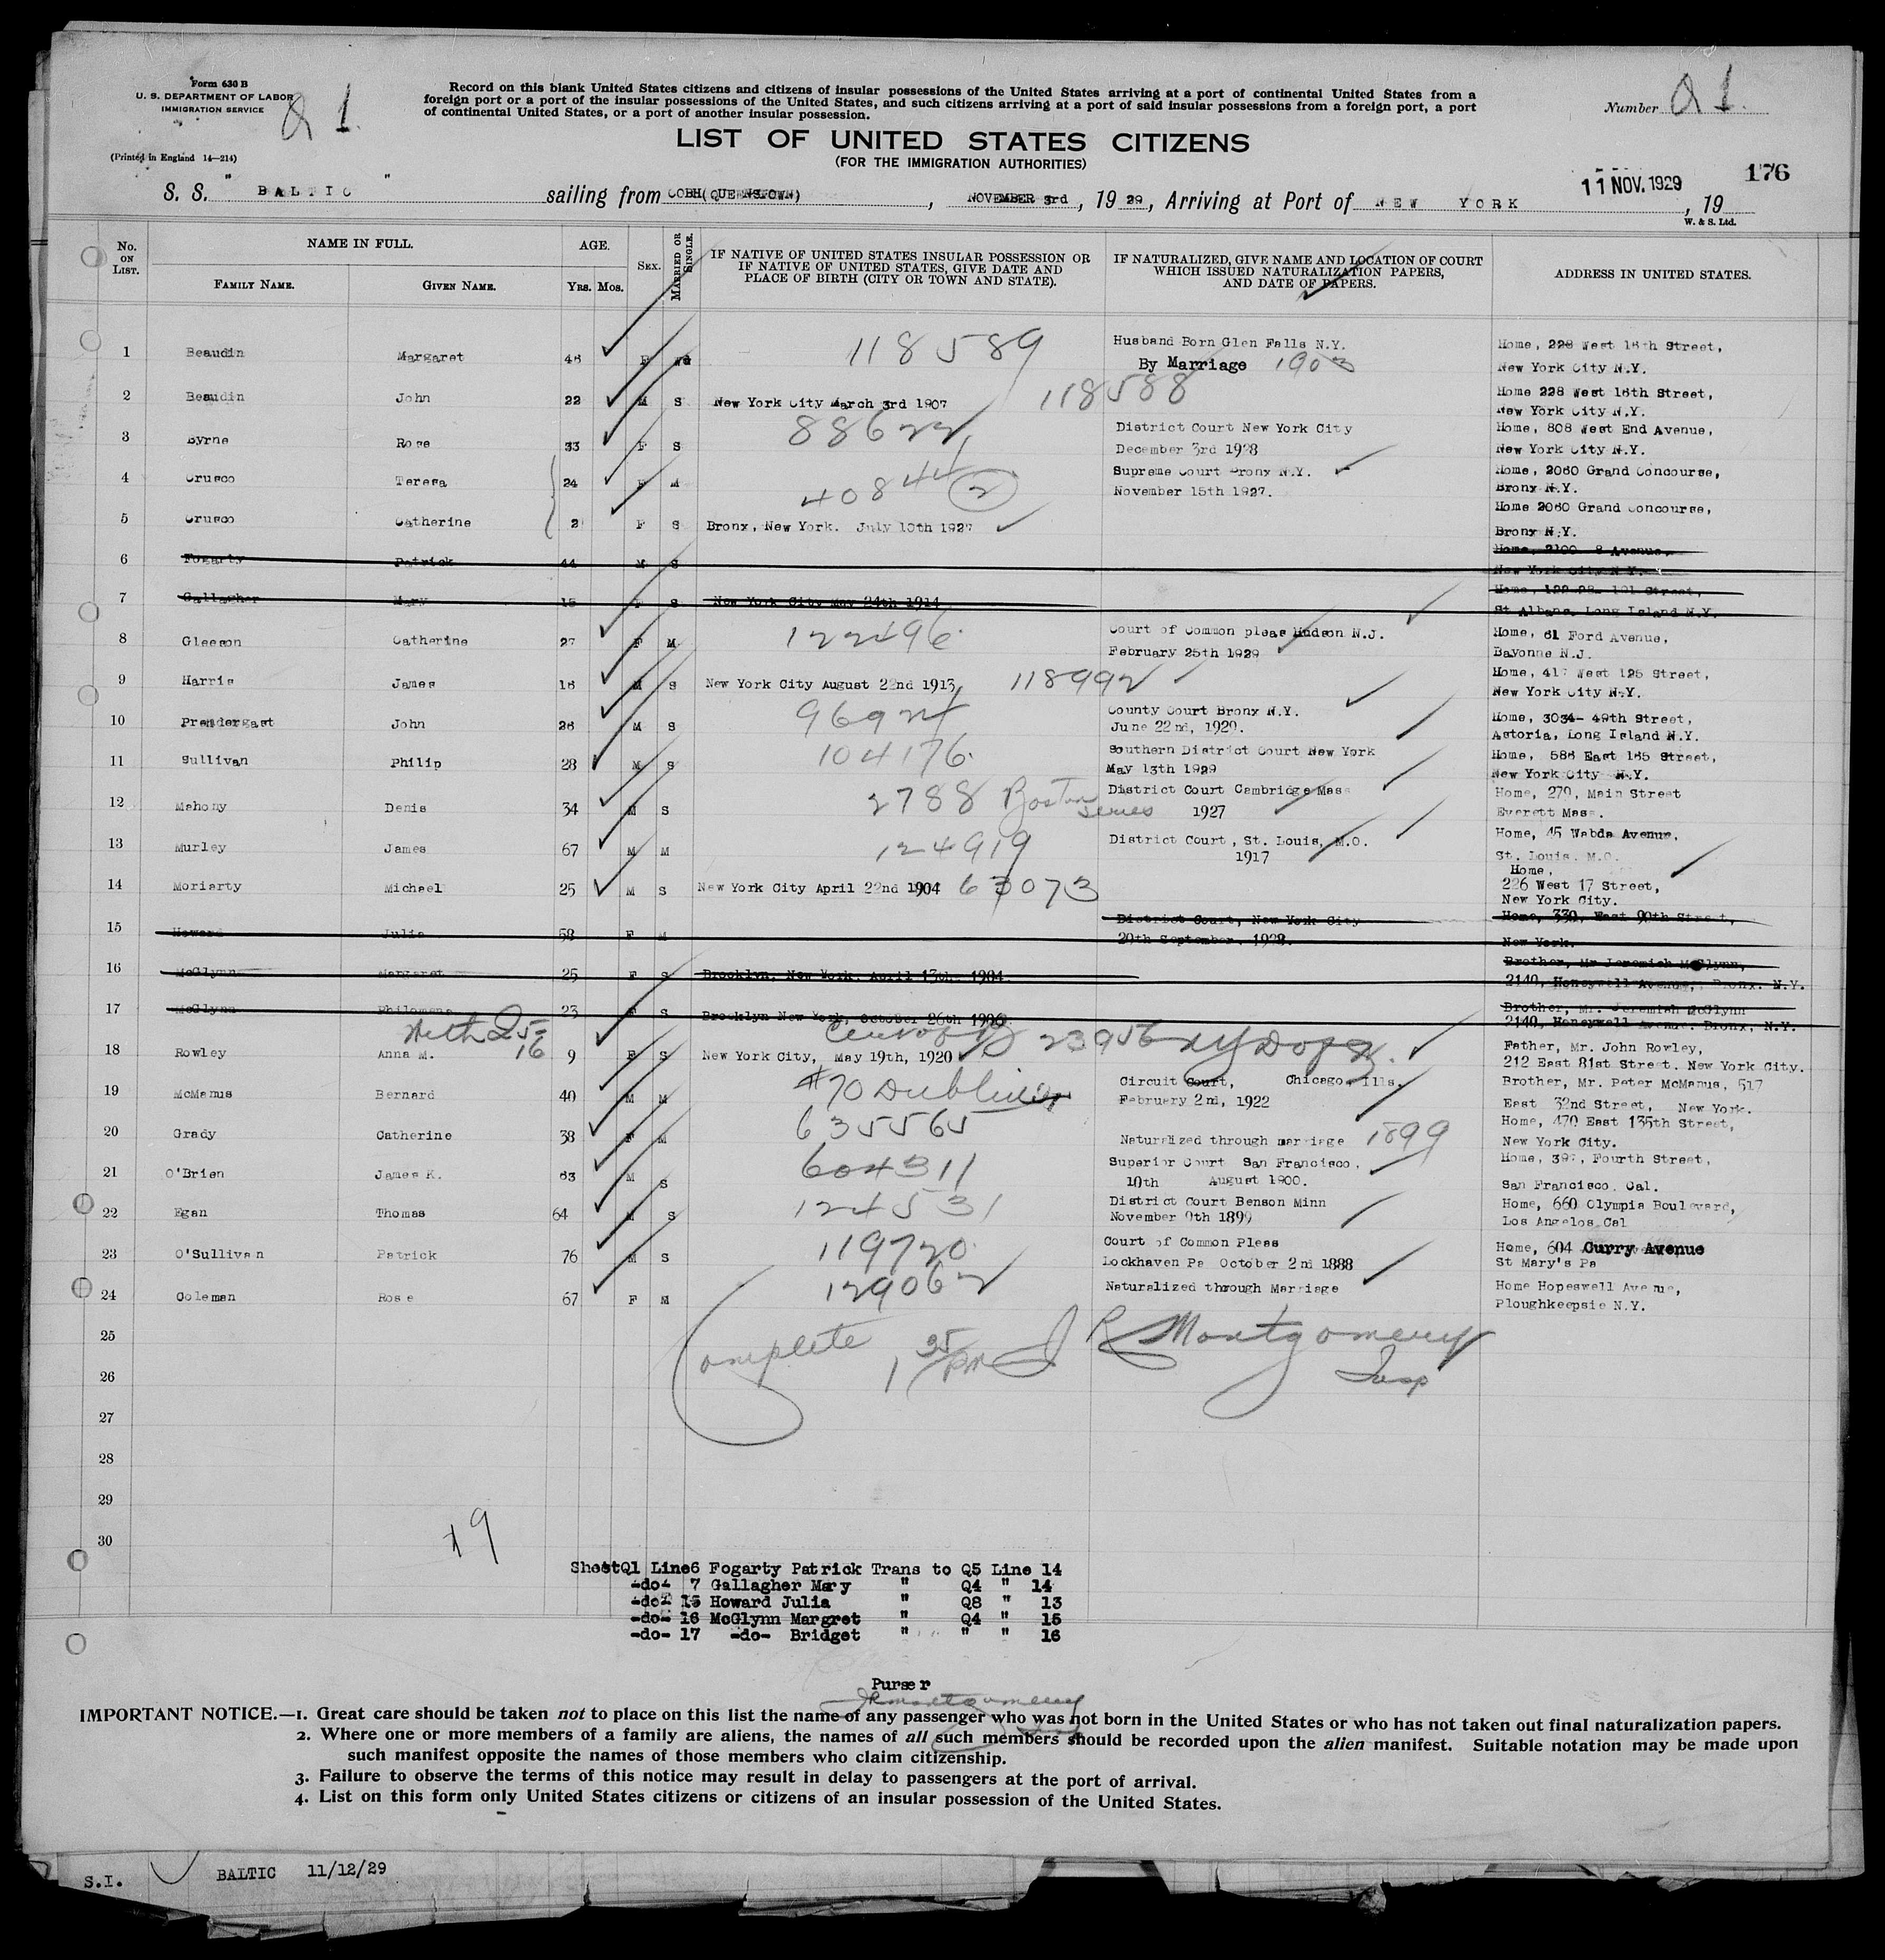 Form 630 B
U. S. DEPARTMENT OF LABOR
IMMIGRATION SERVICE
Q 1.
(Printed in England 14—214)
Record on this blank United States citizens and citizens of insular possessions of the United States arriving at a port of continental United States from a
foreign port or a port of the insular possessions of the United States, and such citizens arriving at a port of said insular possessions from a foreign port, a port
of continental United States, or a port of another insular possession.
Number Q 1.
LIST OF UNITED STATES CITIZENS
(FOR THE IMMIGRATION AUTHORITIES)
176
S. S. "BALTIC" sailing from COBH(QUEENSTOWN), NOVEMBER 3rd, 19 29, Arriving at Port of NEW YORK 11 NOV. 1929, 19
W. & S. Ltd.
No. ON LIST. NAME IN FULL. AGE. SEX. MARRIED OR SINGLE. IF NATIVE OF UNITED STATES INSULAR POSSESSION OR IF NATIVE OF UNITED STATES, GIVE DATE AND PLACE OF BIRTH (CITY OR TOWN AND STATE). IF NATURALIZED, GIVE NAME AND LOCATION OF COURT WHICH ISSUED NATURALIZATION PAPERS, AND DATE OF PAPERS. ADDRESS IN UNITED STATES.
FAMILY NAME. GIVEN NAME. YRS. MOS.
1 Beaudin Margaret 46 F Wd 118589 Husband Born Glen Falls N.Y. Home, 228 West 16th Street,
By Marriage 1903 New York City N.Y.
2 Beaudin John 22 M S New York City March 3rd 1907 118588 Home 228 West 16th Street,
New York City N.Y.
3 Byrne Rose 33 F S 88622 District Court New York City Home, 808 West End Avenue,
December 3rd 1928 New York City N.Y.
4 Crusco Teresa 24 F M 40844 (2) Supreme Court Bronx N.Y. Home, 2060 Grand Concourse,
November 15th 1927. Bronx N.Y.
5 Crusco Catherine 2 F S Bronx, New York. July 10th 1927 Home 2060 Grand Concourse,
Bronx N.Y.
6 Fogarty Patrick 44 M S Home, 2100 8 Avenue,
New York City N.Y.
7 Gallagher Mary 15 F S New York City May 24th 1914 Street,
St Albans, Long Island N.Y.
8 Gleeson Catherine 27 F M 122496 Court of Common pleas Hudson N.J. Home, 61 Ford Avenue,
February 25th 1929 Bayonne N.J.
9 Harris James 16 M S New York City August 22nd 1913 118992 Home, 417 West 125 Street,
New York City N.Y.
10 Prendergast John 26 M S 96924 County Court Bronx N.Y. Home, 3034- 49th Street,
June 22nd, 1920. Astoria, Long Island N.Y.
11 Sullivan Philip 28 M S 104176 Southern District Court New York Home, 586 East 165 Street,
May 13th 1929 New York City N.Y.
12 Mahony Denis 34 M S 2788 Boston series District Court Cambridge Mass Home, 270, Main Street
1927 Everett Mass.
13 Murley James 67 M M 124919 District Court, St. Louis, M.O. Home, 45 Wabda Avenue,
1917 St. Louis. M.O.
14 Moriarty Michael 25 M S New York City April 22nd 1904 63073 Home,
226 West 17 Street,
New York City.
15 Howard Julia 58 F M District Court, New York City Home, 330, East 90th Street,
20th September. 1928. New York.
16 McGlynn Margaret 25 F S Brooklyn, New York. April 13th 1904 Brother, Mr Jeremiah McGlynn,
2140, Honeywell Avenue, Bronx. N.Y.
17 McGlynn Philomena 23 F S Brooklyn New York, October 26th 1906 Brother, Mr. Jeremiah McGlynn
2140, Honeywell Avenue. Bronx, N.Y.
With Q 5-16
18 Rowley Anna M. 9 F S New York City, May 19th, 1920 23956 Father, Mr. John Rowley,
212 East 81st Street. New York City.
19 McManus Bernard 40 M M #70 Dublin Circuit Court, Chicago Ills. Brother, Mr. Peter McManus, 517
February 2nd, 1922 East 32nd Street, New York.
20 Grady Catherine 38 F M 635565 Naturalized through marriage 1899 Home, 470 East 135th Street,
New York City.
21 O'Brien James K. 63 M S 604311 Superior Court San Francisco. Home, 397, Fourth Street,
10th August 1900. San Francisco. Cal.
22 Egan Thomas 64 M S 124531 District Court Benson Minn Home, 660 Olympia Boulevard,
November 9th 1899 Los Angelos Cal
23 O'Sullivan Patrick 76 M S 119720 Court of Common Pleas Home, 604 Curry Avenue
Lockhaven Pa October 2nd 1888 St Mary's Pa
24 Coleman Rose 67 F M 129062 Naturalized through Marriage Home Hopeswell Avenue,
Ploughkeepsie N.Y.
25
Complete 1 35 PM J R Montgomery
26 Insp
27
28
29
30
19
Sheet Q1 Line 6 Fogarty Patrick Trans to Q5 Line 14
-do- 7 Gallagher Mary " Q4 " 14
-do- 15 Howard Julia " Q8 " 13
-do- 16 McGlynn Margret " Q4 " 15
-do- 17 -do- Bridget " " " 16
Purser
JR Montgomery
IMPORTANT NOTICE.—1. Great care should be taken not to place on this list the name of any passenger who was not born in the United States or who has not taken out final naturalization papers.
2. Where one or more members of a family are aliens, the names of all such members should be recorded upon the alien manifest. Suitable notation may be made upon
such manifest opposite the names of those members who claim citizenship.
3. Failure to observe the terms of this notice may result in delay to passengers at the port of arrival.
4. List on this form only United States citizens or citizens of an insular possession of the United States.
S.I. BALTIC 11/12/29